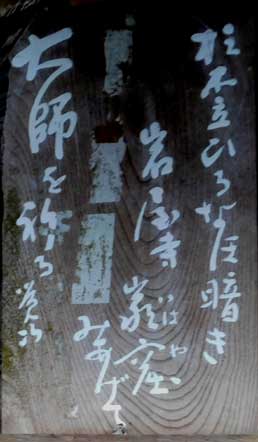 杉木立ひるなほ暗き
岩屋寺巌窟
みあげて
大師を祈る